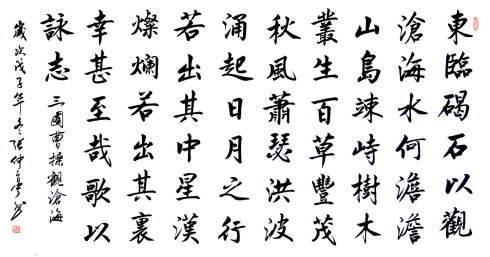 東臨碣石以觀
滄海水何澹澹
山島竦峙樹木
叢生百草豐茂
秋風蕭瑟洪波
涌起日月之行
若出其中星漢
燦爛若出其裏
幸甚至哉歌以
詠志 三國曹操觀滄海
歲次戊子年冬張仲亭书